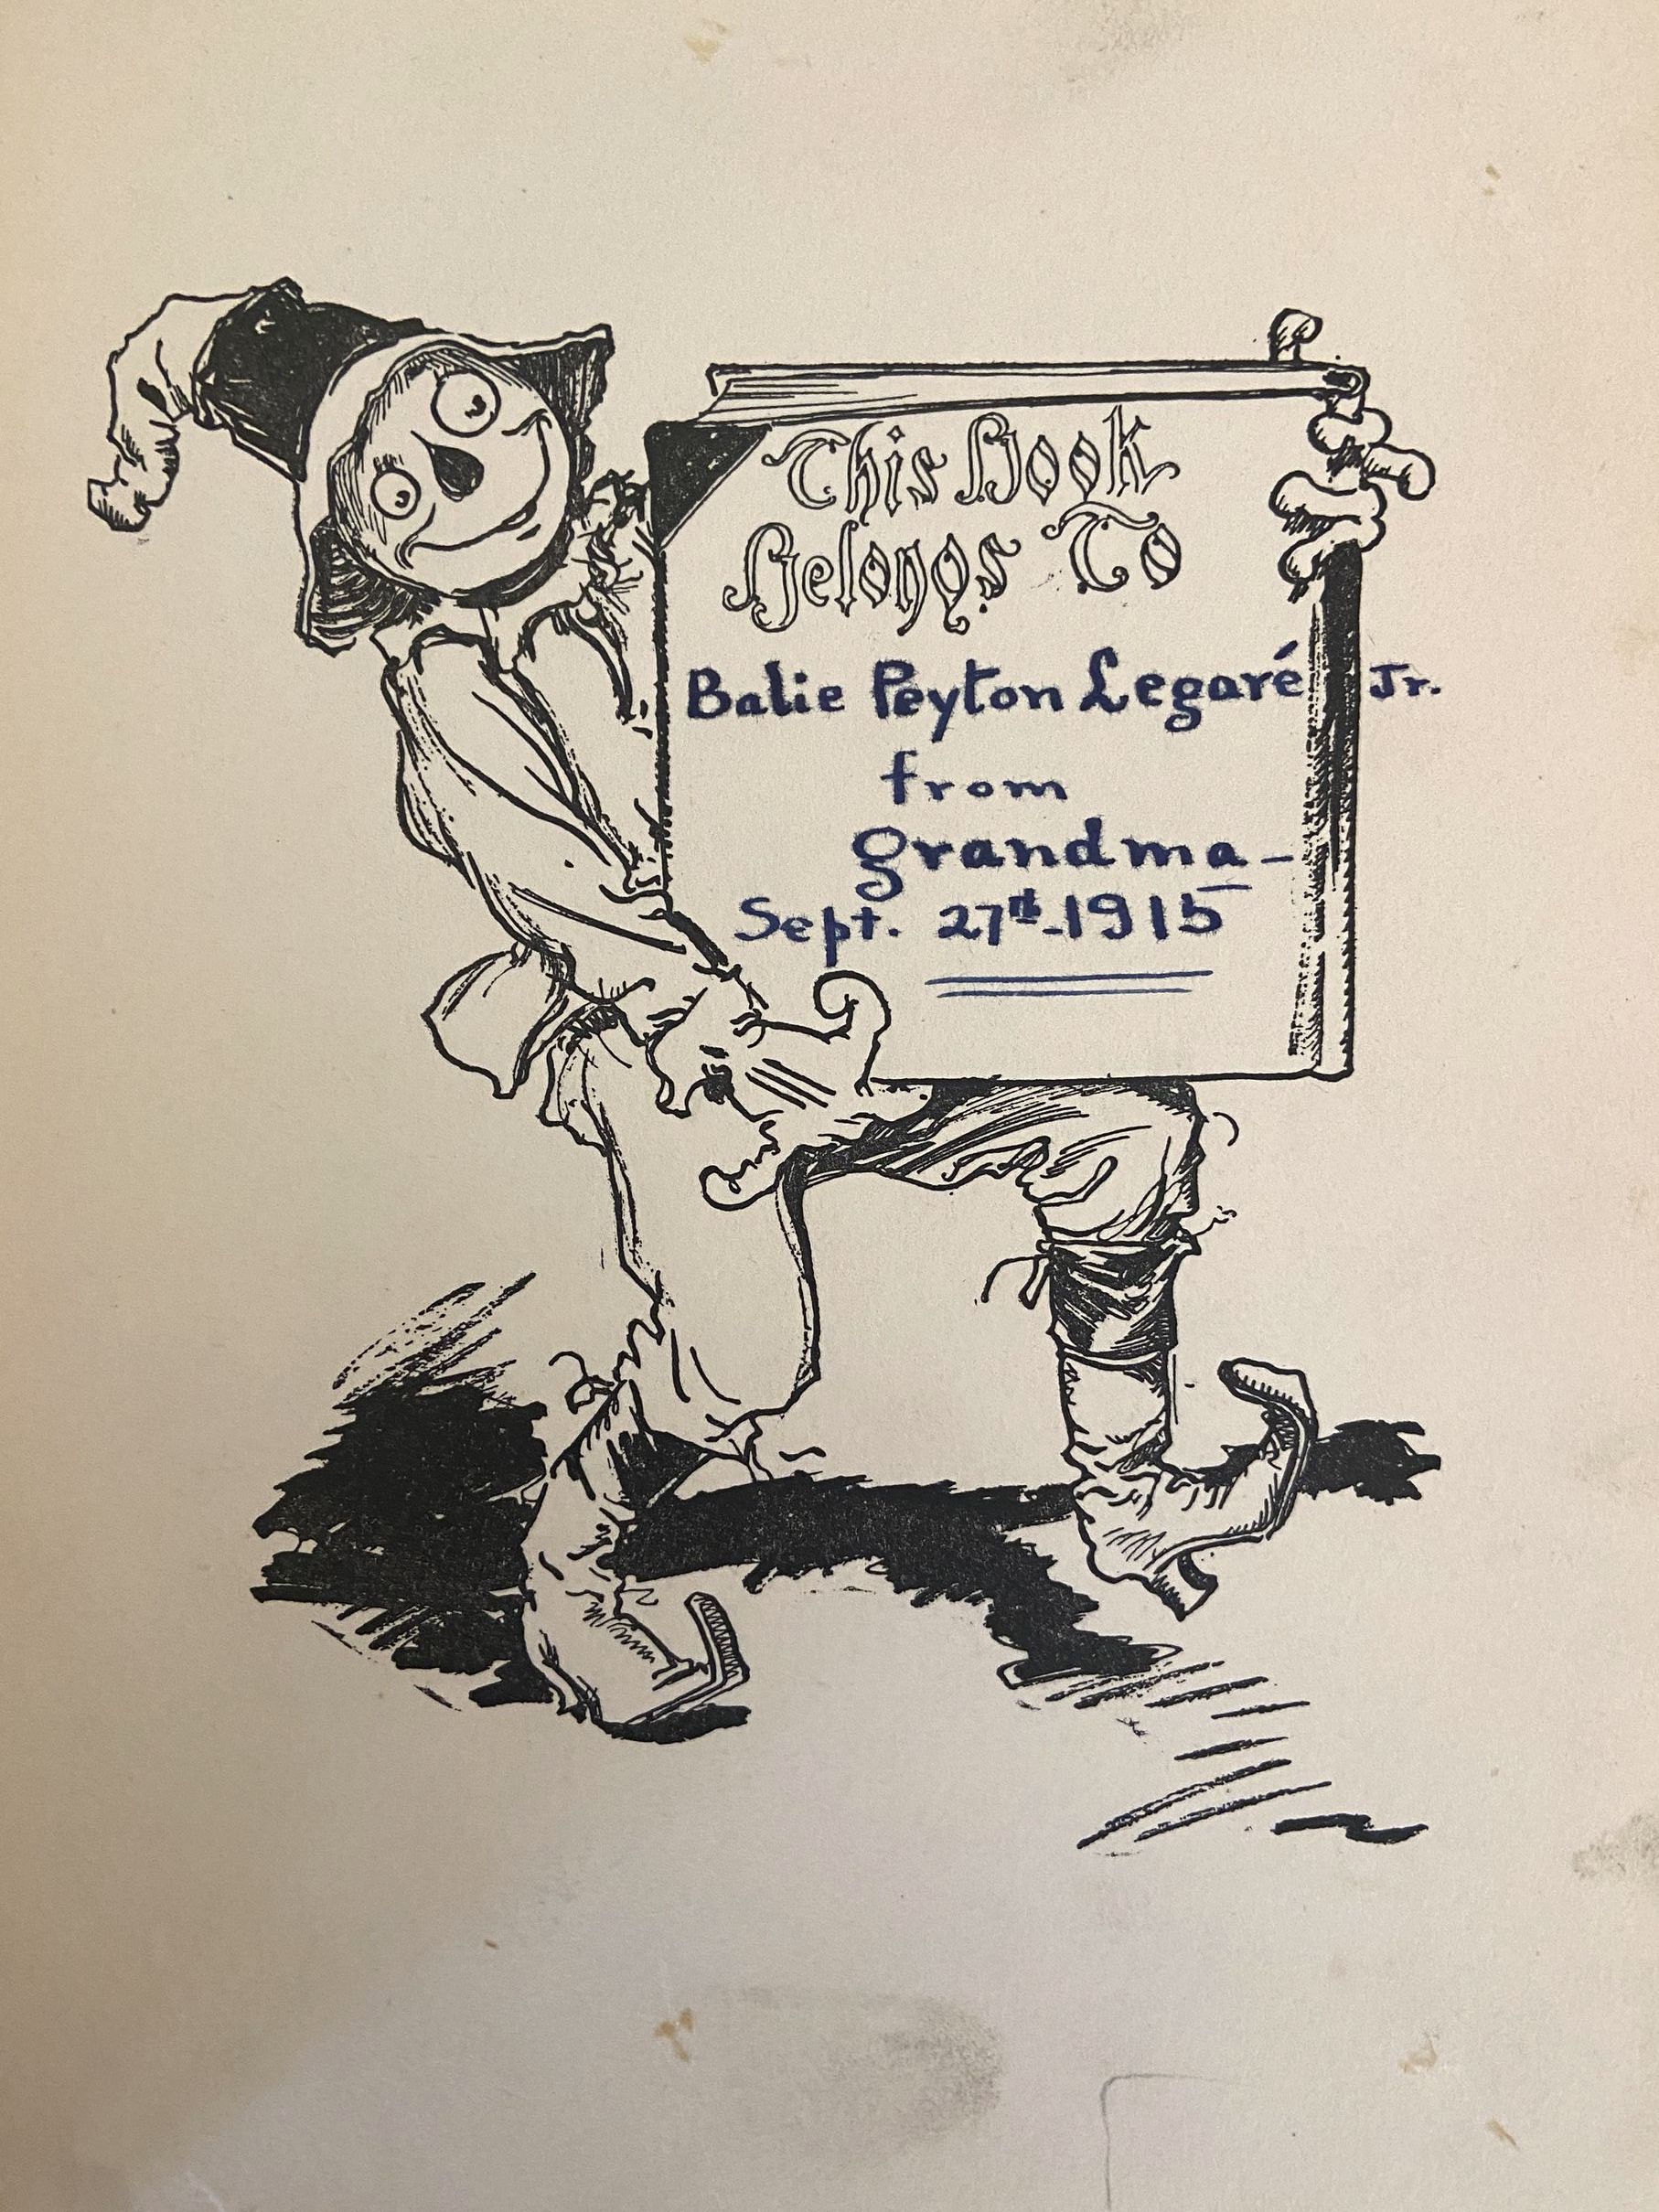 This Book
Belongs To
Balie Peyton Legaré Jr.
from
grandma—
Sept. 27th-1915